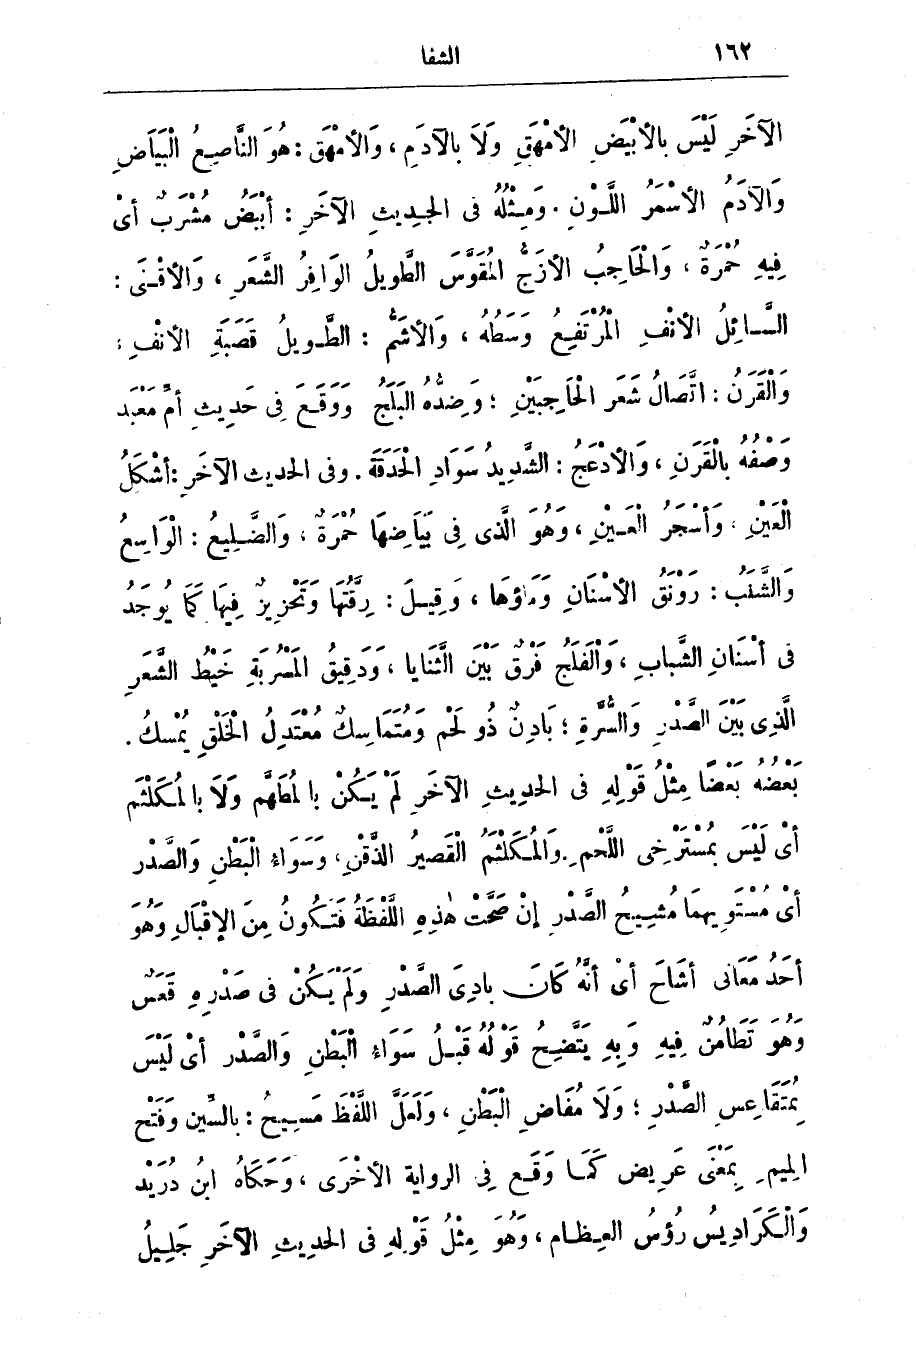 ١٦٢ الشفا
الآخَرِ لَيْسَ بالأَبْيَضِ الأَمْهَقِ وَلَا بالآدَمِ ، وَالأَمْهَق : هُوَ النَّاصِعُ الْبَيَاضِ
وَالآدَمُ الأَسْمَرُ اللَّوْنِ . وَمِثْلُهُ فى الحديثِ الآخَرِ : أَبْيَضُ مُشْرَبٌ أىْ
فِيهِ حُمْرَةٌ ، وَالْحَاجِبُ الأَزَجُّ المُقَوَّسَ الطَّوِيلُ الوَافِرُ الشَّعَرِ ، وَالأَقْنَى :
السَّائِلُ الأَنْفِ الْمُرْتَفِعُ وَسَطُهُ ، وَالأَشَمُّ : الطَّوِيلُ قَصَبَةِ الأَنْفِ ،
وَالْقَرَنُ : اتِّصَالُ شَعَرِ الْحَاجِبَيْنِ ؛ وَضِدُّهُ البَلَجُ وَوَقَعَ فِى حَدِيثِ أُمِّ مَعْبَد
وَصْفُهُ بالْقَرَنِ ، وَالأَدْعَجُ : الشَّدِيدُ سَوَادِ الْحَدَقَةِ . وفى الحديث الآخَرِ : أَشْكَلُ
الْعَيْنِ ، وَأَسْجَرُ الْعَيْنِ ، وَهُوَ الَّذِى فِى بَيَاضِهَا حُمْرَةٌ ، وَالضَّلِيعُ : الْوَاسِعُ
وَالشَّنَبُ : رَوْنَقُ الأَسْنَانِ وَمَاؤُهَا ، وَقِيلَ : رِقَّتُهَا وَتَحْزِيزٌ فِيهَا كَمَا يُوجَدُ
فى أَسْنَانِ الشَّبابِ ، وَالْفَلَجُ فَرْقٌ بَيْنَ الثَّنَايا ، وَدَقِيقُ المَسْرُبَةِ خَيْطُ الشَّعَرِ
الَّذِى بَيْنَ الصَّدْرِ وَالسُّرَّةِ ؛ بَادِنٌ ذُو لَحْمٍ وَمُتَمَاسِكٌ مُعْتَدِلُ الْخَلْقِ يُمْسِكُ .
بَعْضُهُ بَعْضًا مِثْلُ قَوْلِهِ فى الحديثِ الآخَرِ لَمْ يَكُنْ بالمُطَهَّمِ وَلَا بالمُكَلْثَمِ
أىْ لَيْسَ بِمُسْتَرْخِى اللَّحْمِ . وَالمُكَلْثَمُ الْقَصِيرُ الذَّقَنِ ، وَسَوَاءُ الْبَطْنِ وَالصَّدْرِ
أىْ مُسْتَوِيهِمَا مُشِيحُ الصَّدْرِ إنْ صَحَّتْ هٰذِهِ اللَّفْظَةُ فَتَكُونُ مِنَ الإِقْبَالِ وَهُوَ
أَحَدُ مَعَانِى أَشَاحَ أىْ أَنَّهُ كَانَ بادِىَ الصَّدْرِ وَلَمْ يَكُنْ فى صَدْرِهِ قَعَسٌ
وَهُوَ تَطَامُنٌ فِيهِ وَبِهِ يَتَّضِحُ قَوْلُهُ قَبْلُ سَوَاءُ الْبَطْنِ وَالصَّدْرِ أىْ لَيْسَ
بِمُتَقَاعِسِ الصَّدْرِ ؛ وَلَا مُفَاضِ الْبَطْنِ ، وَلَعَلَّ اللَّفْظَ مَسِيحُ : بالسِّينِ وَفَتْحِ
المِيمِ بِمَعْنَى عَرِيضٍ كَمَا وَقَعَ فِى الرواية الأُخْرَى ، وَحَكَاهُ ابنُ دُرَيْدٍ
وَالْكَرَادِيسُ رُؤُسُ العِظامِ ، وَهُوَ مِثْلُ قَوْلِهِ فى الحديثِ الآخَرِ جَلِيلُ